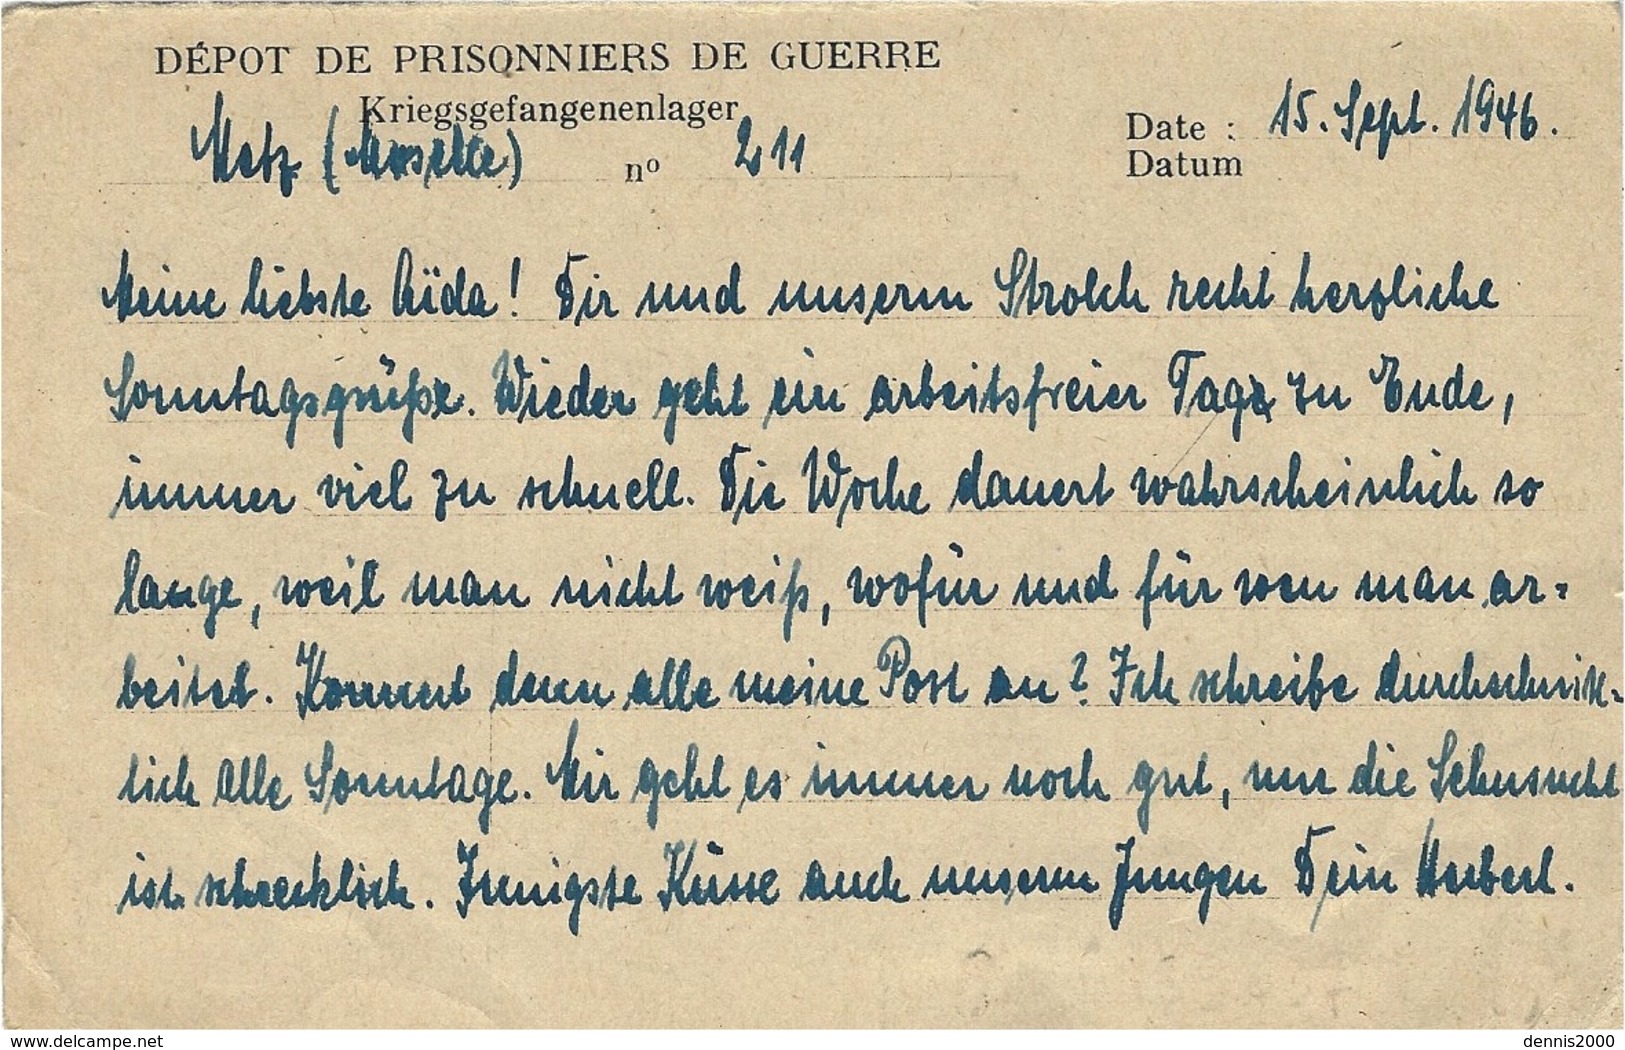 DÉPOT DE PRISONNIERS DE GUERRE
Kriegsgefangenenlager
Metz (Moselle) nº 211
Date : 15. Sept. 1946.
Datum
Meine liebste Aïda! Dir und unserm Strolch recht herzliche
Sonntagsgrüße. Wieder geht ein arbeitsfreier Tag zu Ende,
immer viel zu schnell. Die Woche dauert wahrscheinlich so
lange, weil man nicht weiß, wofür und für wen man ar=
beitet. Kommt denn alle meine Post an? Ich schreibe durchschnitt-
lich alle Sonntage. Mir geht es immer noch gut, nur die Sehnsucht
ist schrecklich. Innigste Küsse auch unserm Jungen Dein Herbert.
delcampe.net
dennis2000